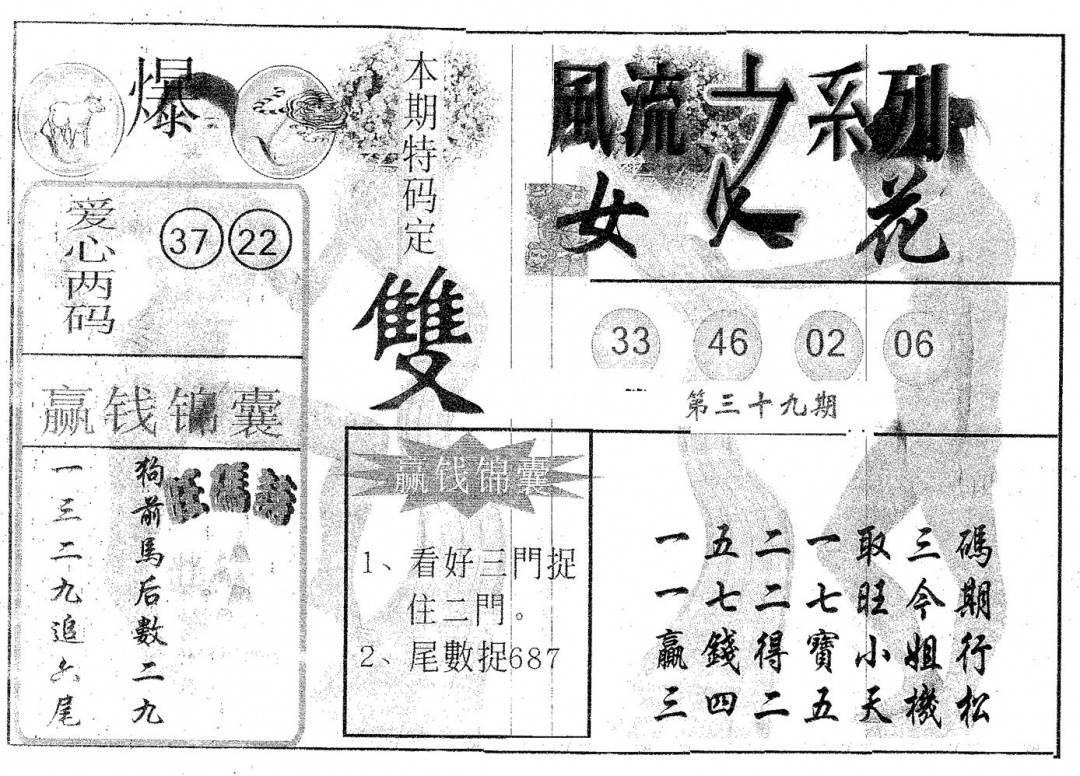 爆
爱心两码
37 22
赢钱锦囊
狗前馬后數二九
一三二九追六尾
本期特码定
雙
赢钱锦囊
1、看好三門捉
住二門。
2、尾數捉687
風流之系列
女人花
33 46 02 06
第三十九期
一五二一取三碼
一七二七旺今期
贏錢得寶小姐行
三四二五天機松